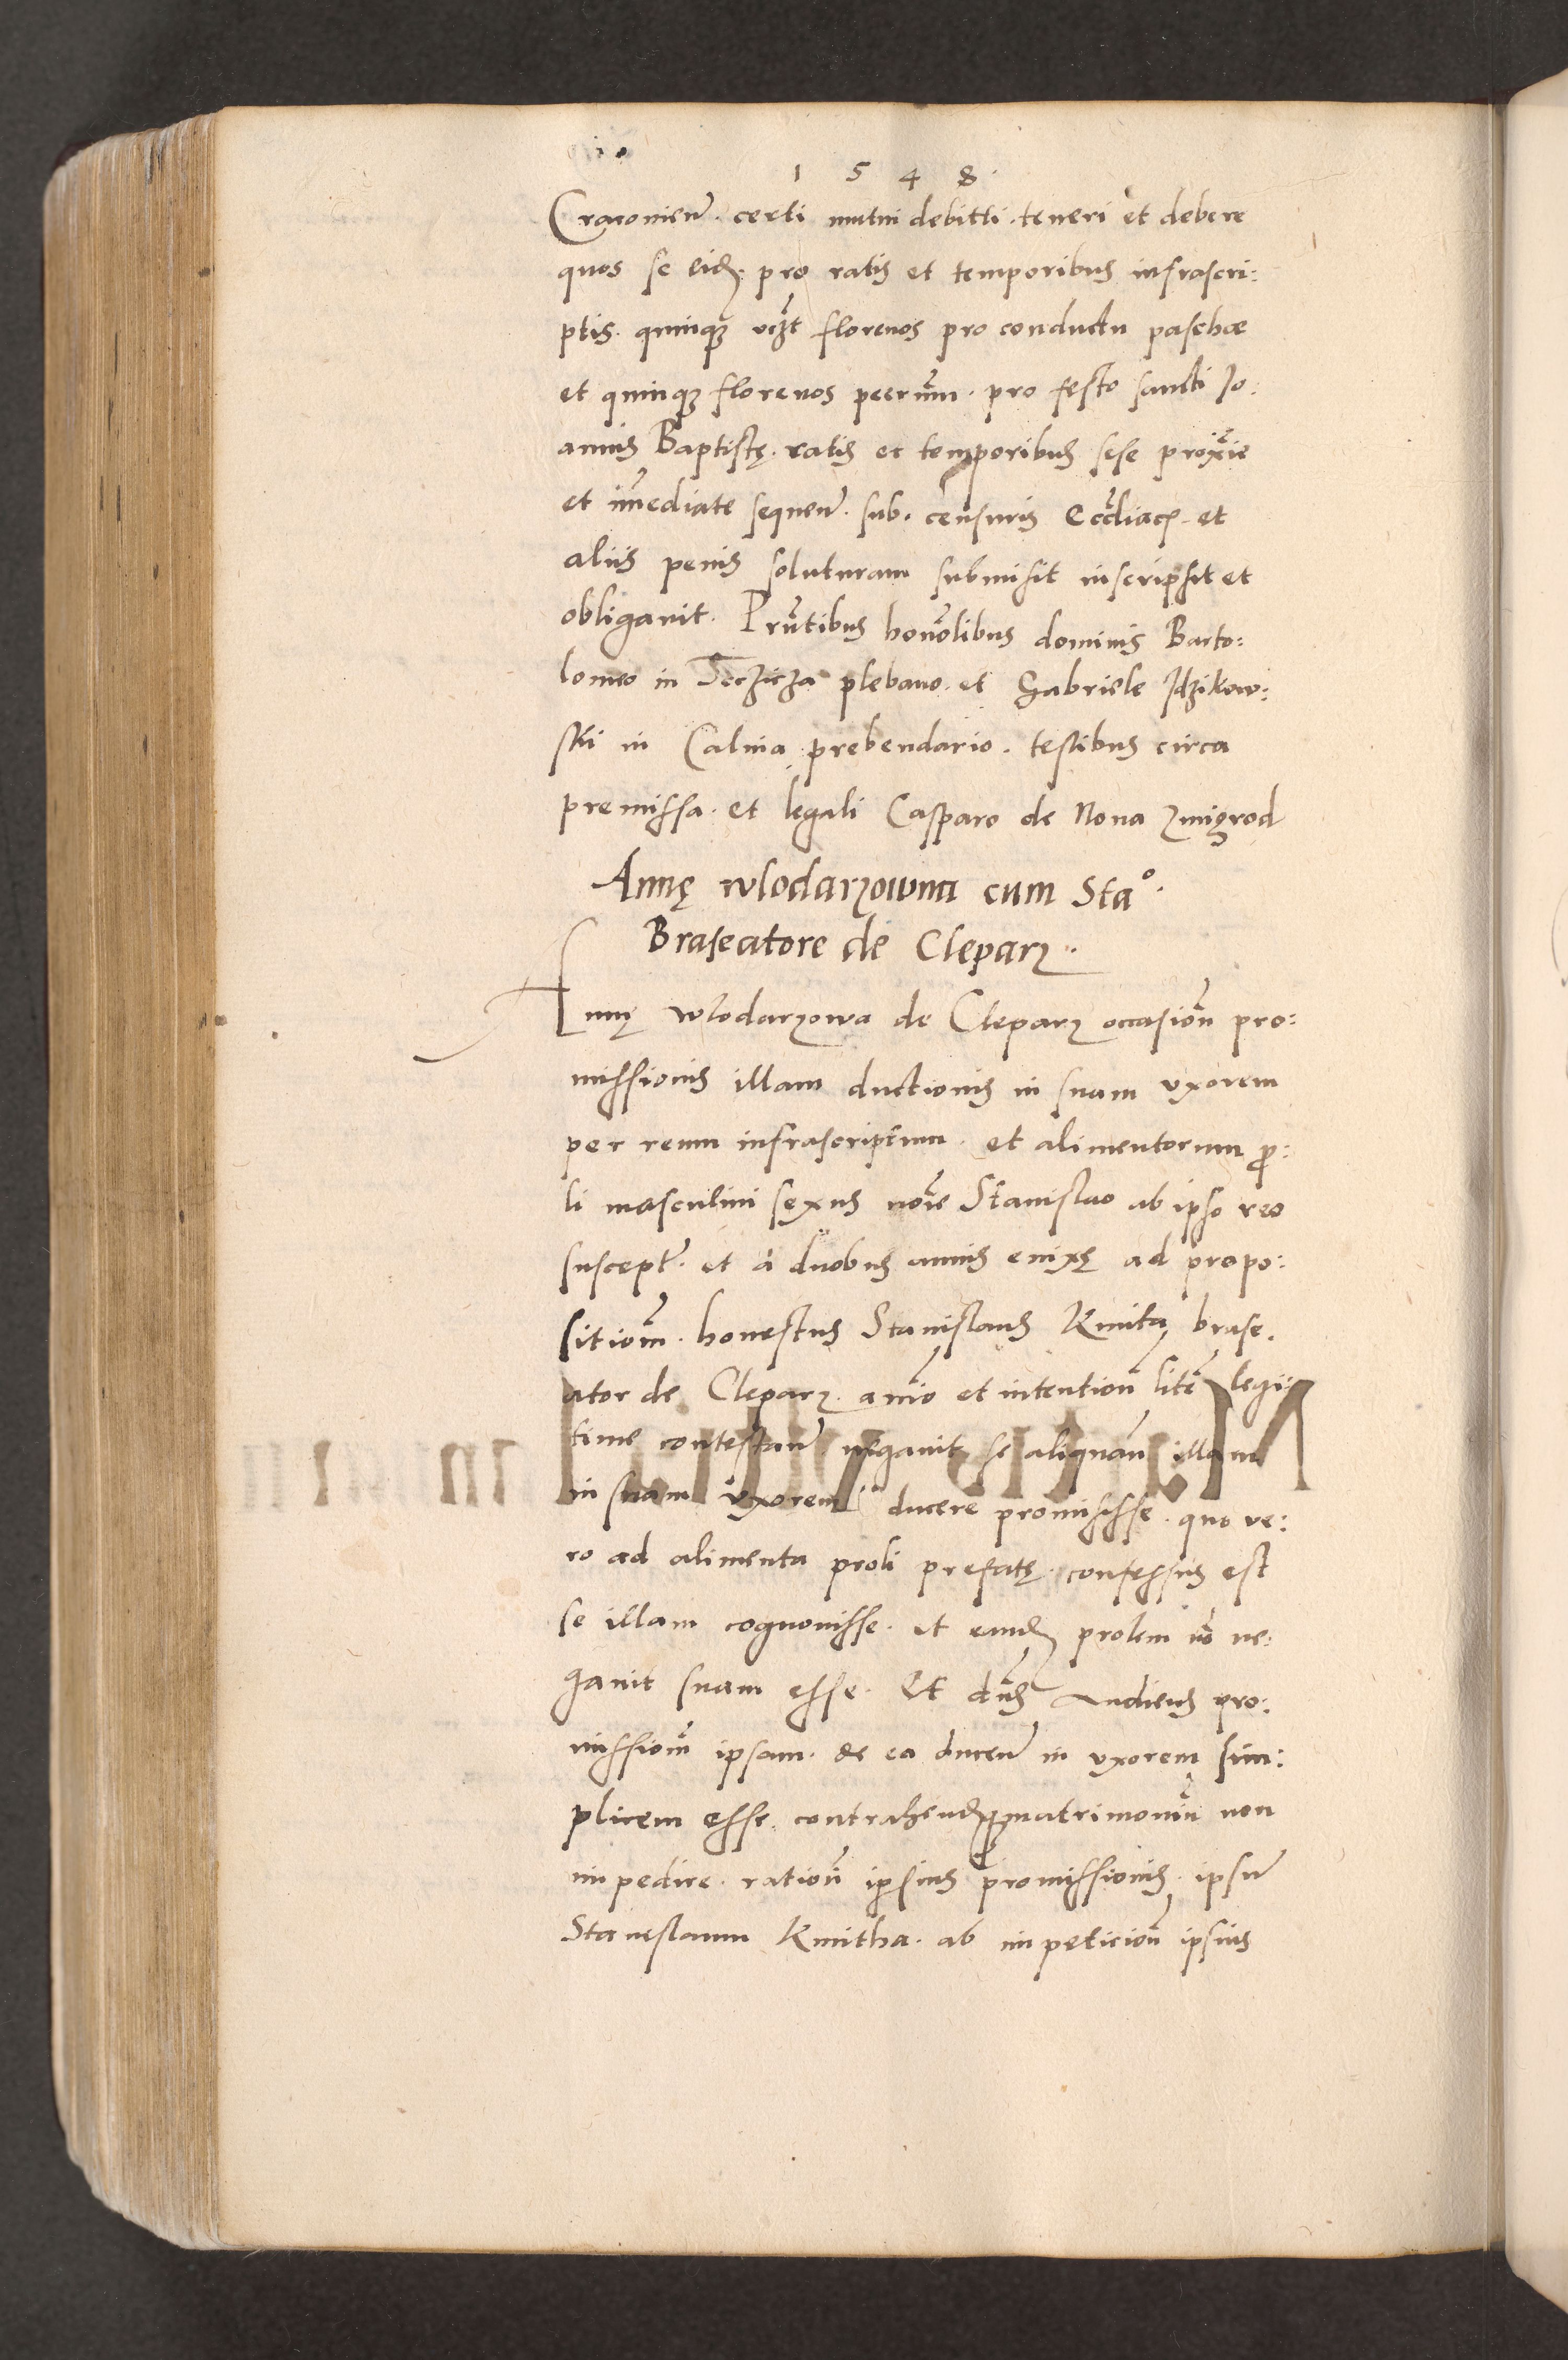 1 5 4 8.
Cracovień. certi mutui debitti. teneri et debere
quos se eid. pro ratis et temporibus infrascri:
ptis. quinque vczt florenos pro conductu paschae
et quinque florenos pecrum̃. pro festo sancti Jo:
annis Baptistę. ratis et temporibus sese proxie
et im̃ediate sequeñ. sub. censuris Eccl̃iac. et
aliis penis soluturam submisit inscripsit et
obligavit. Prñtibus honol̃ibus dominis Barto:
lomeo in plebano. et Gabriele Idzikow:
ski in Calina prebendario. testibus circa
premissa. et legali Casparo de Nova zmigrod
Annę wlodarzowna cum Sta°.
Braseatore de Cleparz.
Annę wlodarzowa de Cleparz occasioñ pro:
missionis illam ductionis in suam uxorem
per reum infrascriptum. et alimentorum pro:
li masculini sexus noĩe Stanislao ab ipso reo
suscept̃. et à duobus annis enixę ad propo:
sitiom̃. honestus Stanislaus Kmita brase.
ator de Cleparz. aĩo et intentioñ litẽ legi:
time contestañ negavit se aliquam̃ illam
in suam uxorem ducere promisisse. quo ve:
ro ad alimenta proli prefatę. confessus est
se illam cognovisse. et eand. prolem nõ ne:
gavit suam esse. Et dñs Audiens pro:
missiom̃ ipsam. de ea duceñ in uxorem sim:
plicem esse. contrahend. matrimoniũ non
impedire. ratioñ ipsius promissionis. ipsũ
Staneslaum Kmitha. ab impeticioñ ipsius